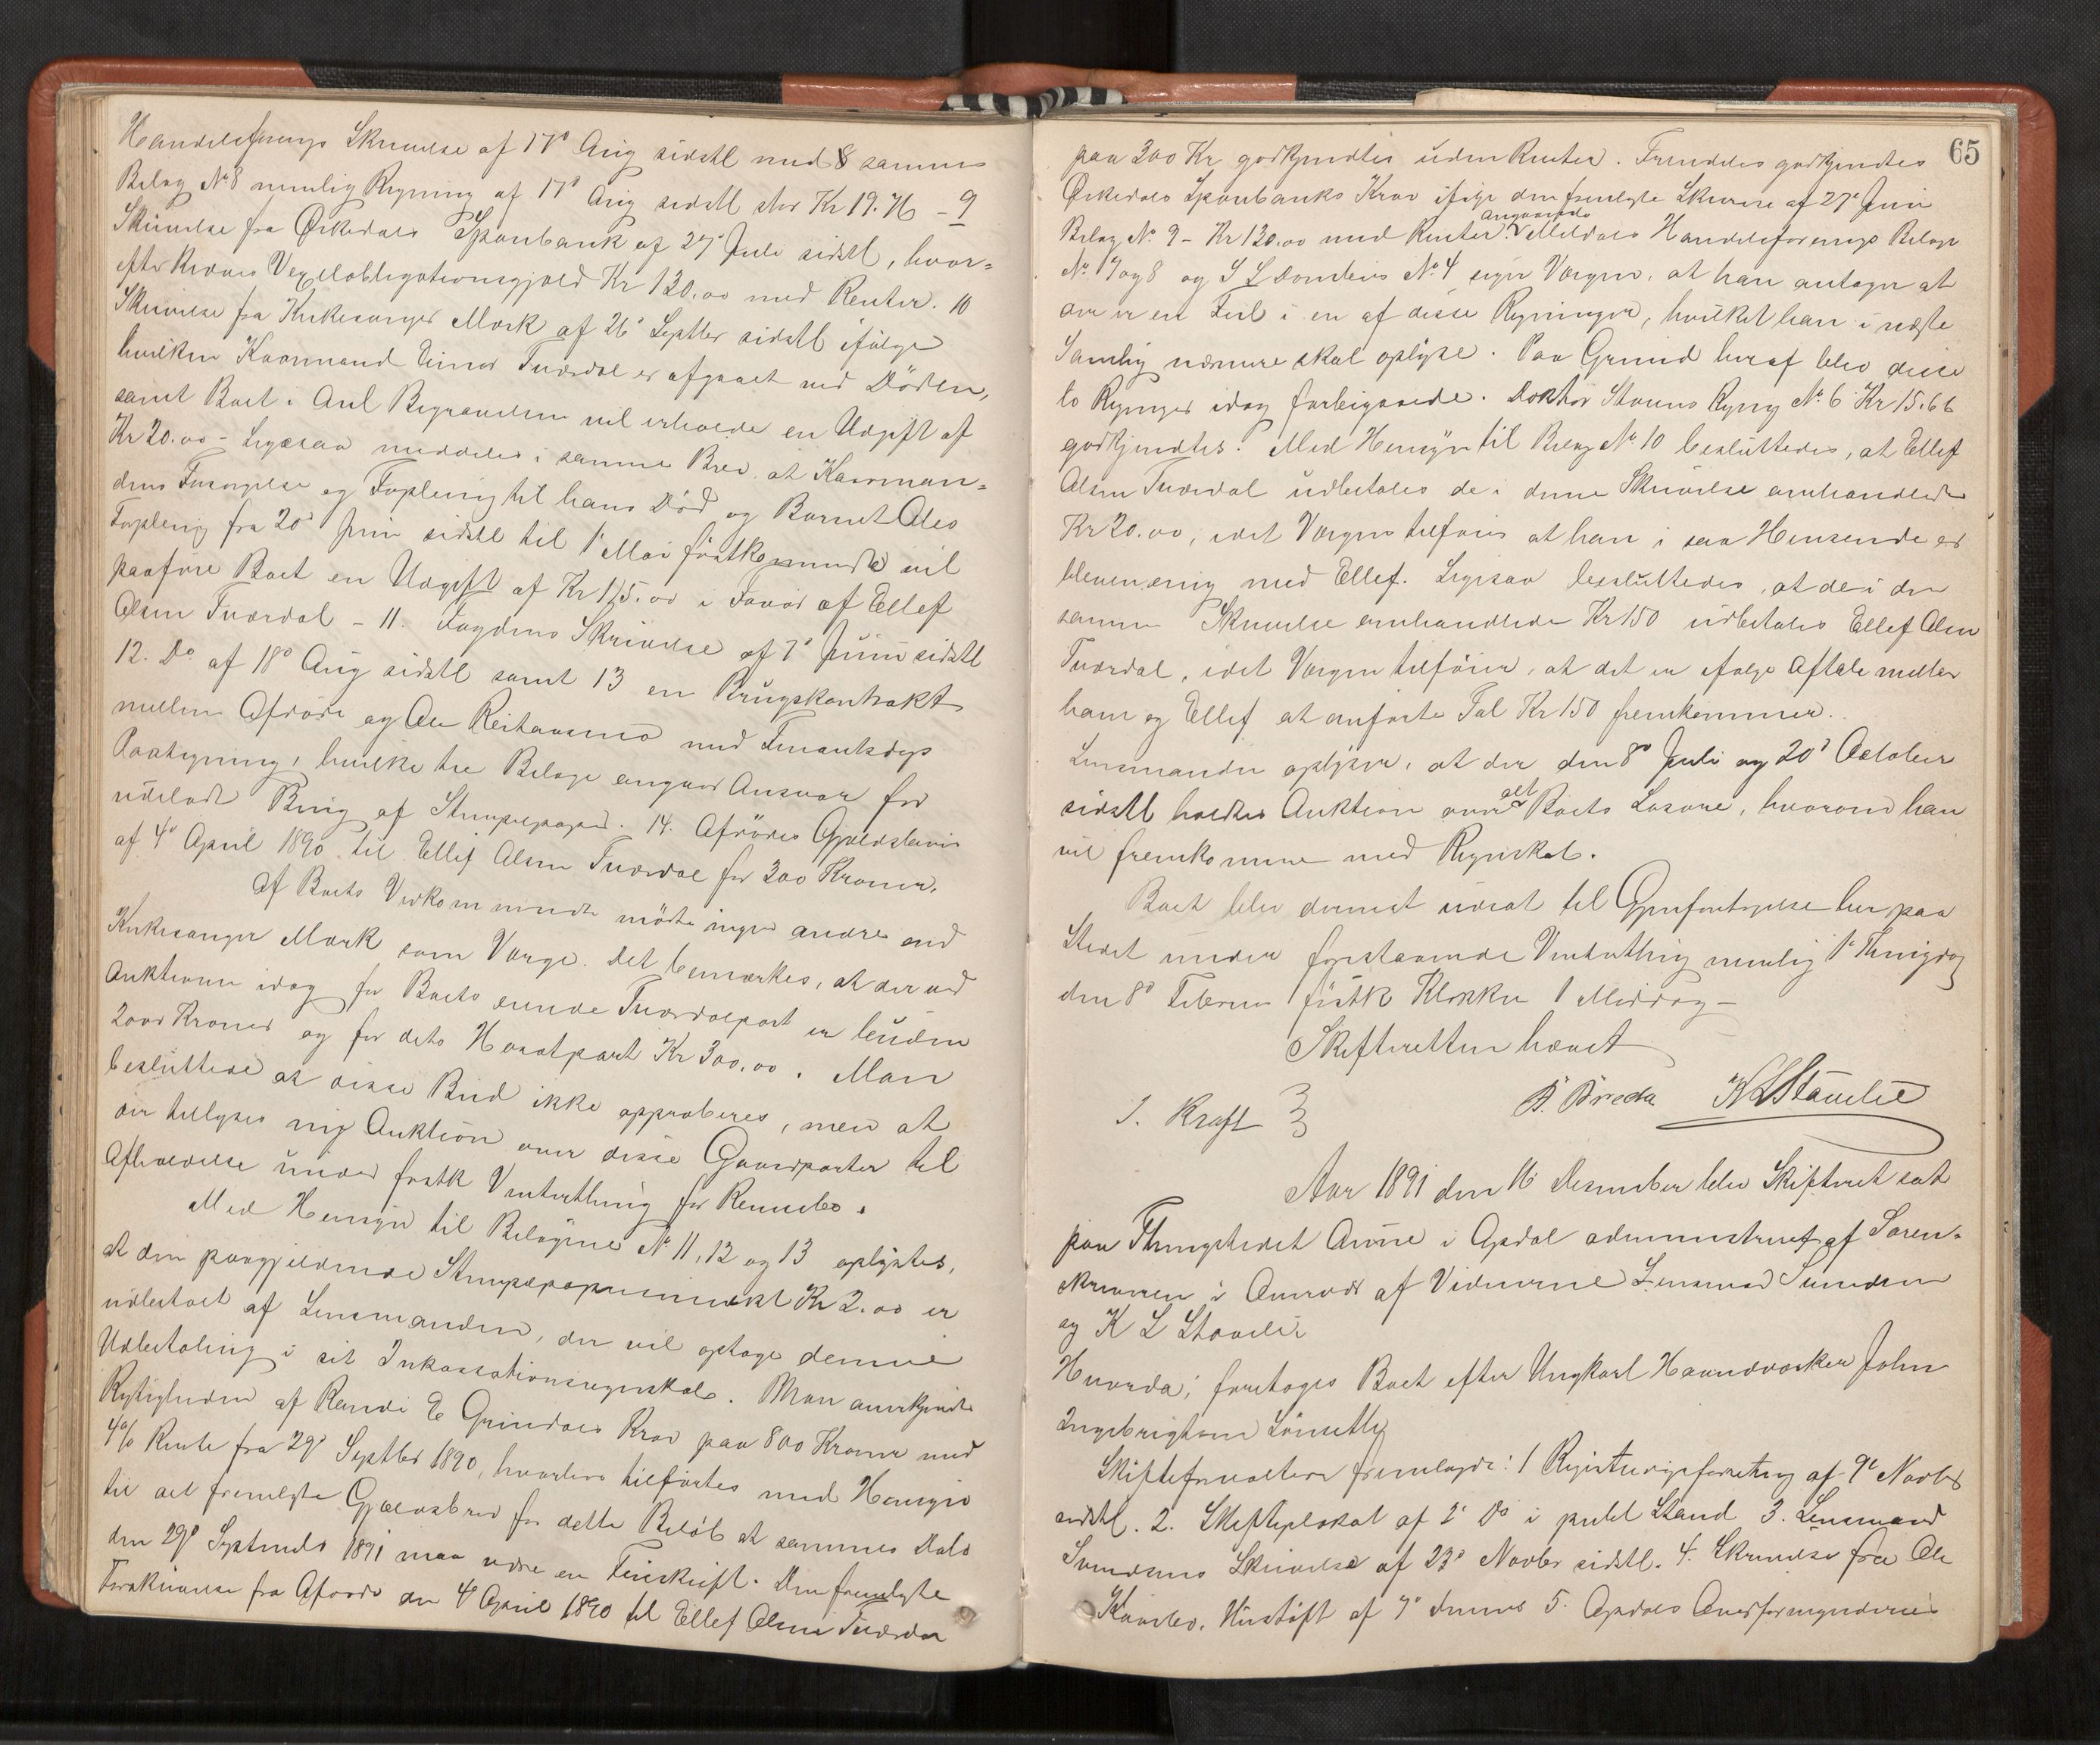 Handelsforenings Skrivelse af 17de Aug sidstl med 8 sammes
Belag No 8 nemlig Regning af 17de Aug sidstl stor Kr 19.76 – 9
Skrivelse fra Ørkedals Sparebank af 27de Juli sidstl, hvor=
efter kræves Vexelobligationsgjæld Kr 120.00 med Renter. 10
Skrivelse fra Kirkesanger Mærk af 26de Septbr sidstl ifølge
hvilken Kaarmand Einar Tværdal er afgaaet ved Døden,
samt Boet i Anl Begravelsen vil erholde en Udgift af
Kr 20.00 – Ligesaa meddeles i samme Brev at Kaarman=
dens Forsørgelse og Forpleining til hans Død og Barnet Oles
Forpleining fra 20de Juni sidstl til 1ste Mai førstkommende vil
paaføre Boet en Udgift af Kr 115.00 i Favør af Ellef
Olsen Tværdal – 11. Fogdens Skrivelse af 7de Juni sidstl
12. Do af 18de Aug sidstl samt 13 en Brugskontrakt
mellem Afdøde og Ole Reitaasmo med Finantsdeps
Paategning, hvilke tre Belage angaar Ansvar for
udeladt Brug af Stempelpapir. 14. Afdødes Gjældsbevis
af 4de April 1890 til Ellef Olsen Tværdal for 300 Kroner.
Af Boets Vedkommende mødte ingen andre end
Kirkesanger Mærk som Værge. Det bemærkes, at der ved
Auktionen idag for Boets eiende Tværdalpart er buden
2000 Kroner og for dets Hosatpart Kr 300.00. Man
besluttede at disse Bud ikke approberes, men at
der tillyses ny Auktion over disse Gaardparter til
Afholdelse under førstk Vinterthing for Rennebo.
Med Hensyn til Belagene No 11, 12 og 13 oplystes,
at den paagjeldende Stempelpapirsmulkt Kr 2.00 er
udbetalt af Lensmanden, der vil optage denne
Udbetaling i sit Inkassationsregnskab. Man anerkjendte
Rigtigheden af Randi E Grindals Krav paa 800 Kroner med
4% Rente fra 29de Septbr 1890, hvorhos tilførtes med Hensyn
til det fremlagte Gjældsbrev for dette Beløb at sammes Dato
den 29de September 1891 maa være en Feilskrift. Den fremlagte
Forskrivelse fra Afdøde den 4de April 1890 til Ellef Olsen Tværdal
65
paa 300 Kr godkjendtes uden Renter. Fremdeles godkjendtes
Ørkedals Sparebanks Krav ifølge den fremlagte Skrivelse af 27de Juni
Belag No 9 – Kr 120.00 med Renter. angaaende Meldals Handelsforenings Belage
No 7 og 8 og S L Dombus No 4 siger Værgen, at han antager at
der er en Feil i en af disse Regninger, hvilket han i næste
Samling nærmere skal oplyse. Paa Grund heraf blev disse
to Regninger idag forbigaaede. Doktor Stauns Regng No 6 Kr 15.66
godkjendtes. Med Hensyn til Belag No 10 besluttedes, at Ellef
Olsen Tværdal udbetales de i denne Skrivelse omhandlede
Kr 20.00, idet Værgen tilføies at han i saa Henseende er
bleven enig med Ellef. Ligesaa besluttedes, at de i den
samme Skrivelse omhandlede Kr 150 udbetales Ellef Olsen
Tværdal, idet Værgen tilføier, at det er ifølge Aftale mellem
ham og Ellef at anførte Tal Kr 150 fremkommer.
Lensmanden oplyser, at der den 8de Juli og 20de October
sidstl holdtes Auktion over alt Boets Løsøre, hvorom han
vil fremkomme med Regnskab.
Boet blev dernæst udsat til Gjenforetagelse her paa
Stedet under forestaaende Vinterthing nemlig 1ste Thingdag
den 8de Februar førstk Klokken 1 Middag –
Skifteretten hævet
I. Kraft
B. Breda K L Stavelie
Aar 1891 den 16 Desember blev Skifteret sat
paa Thingstedet Aune i Opdal administreret af Soren=
skriveren i Overvær af Vidnerne Lensmand Svendsen
og K L Stavlie
Hvorda, foretoges Boet efter Ungkarl Haandværker John
Ingebrigtsen Lønsetth
Skifteforvalteren fremlagde: 1 Registreringsforretning af 9de Novbr
sidstl. 2. Skifteplakat af 2 Do i publ Stand 3. Lensmand
Svendsens Skrivelse af 23de Novbr sidstl. 4. Skrivelse fra Ole
af 7de dennes 5. Opdals Overformynderies